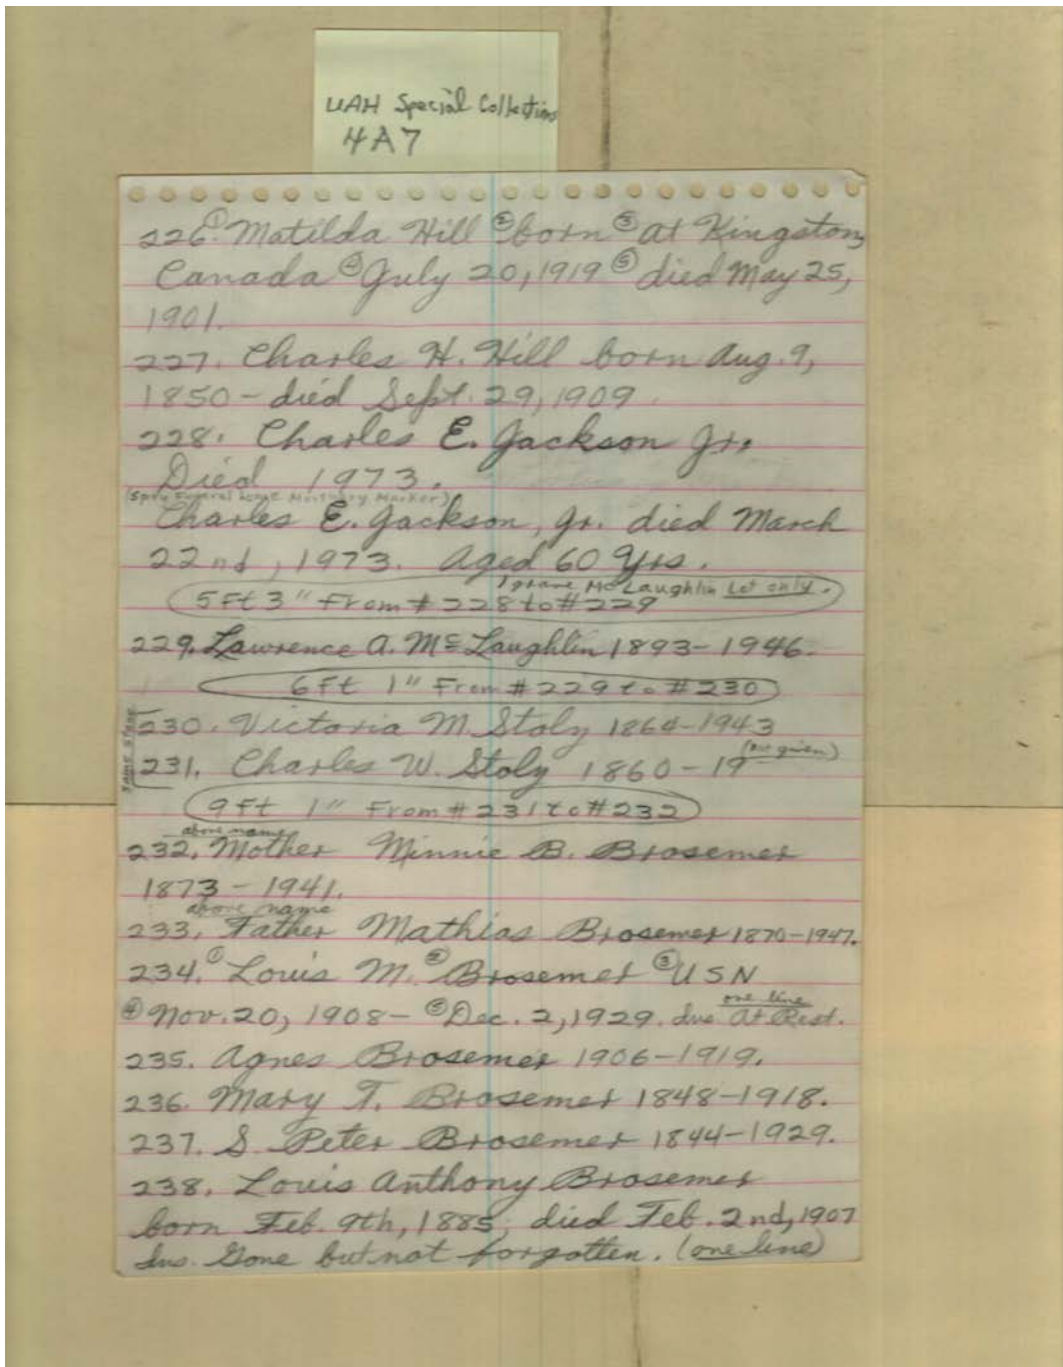 UAH Special Collections
4A7
226. ① Matilda Hill ② born ③ at Kingston,
Canada ④ July 20, 1919 ⑤ died May 25,
1901.
227. Charles H. Hill born Aug. 9,
1850 - died Sept. 29, 1909.
228. Charles E. Jackson Jr.
Died 1973.
(Spry Funeral Home Mortuary Marker)
Charles E. Jackson, Jr. died March
22nd, 1973. Aged 60 yrs.
1 grave McLaughlin Lot only.
5Ft 3" From #228 to #229
229. Lawrence A. McLaughlin 1893-1946.
6Ft 1" From #229 to #230
same stone
230. Victoria M. Stoly 1864-1943
(not given)
231. Charles W. Stoly 1860-19
9Ft 1" From #231 to #232
above name
232. Mother Minnie B. Brosemer
1873-1941.
above name
233. Father Mathias Brosemer 1870-1947.
234. ① Louis M. ② Brosemer ③ USN
one line
④ Nov. 20, 1908- ⑤ Dec. 2, 1929. Ins. At Rest.
235. Agnes Brosemer 1906-1919.
236. Mary T. Brosemer 1848-1918.
237. S. Peter Brosemer 1844-1929.
238. Louis Anthony Brosemer
born Feb. 9th, 1885, died Feb. 2nd, 1907
Ins. Gone but not forgotten. (one line)